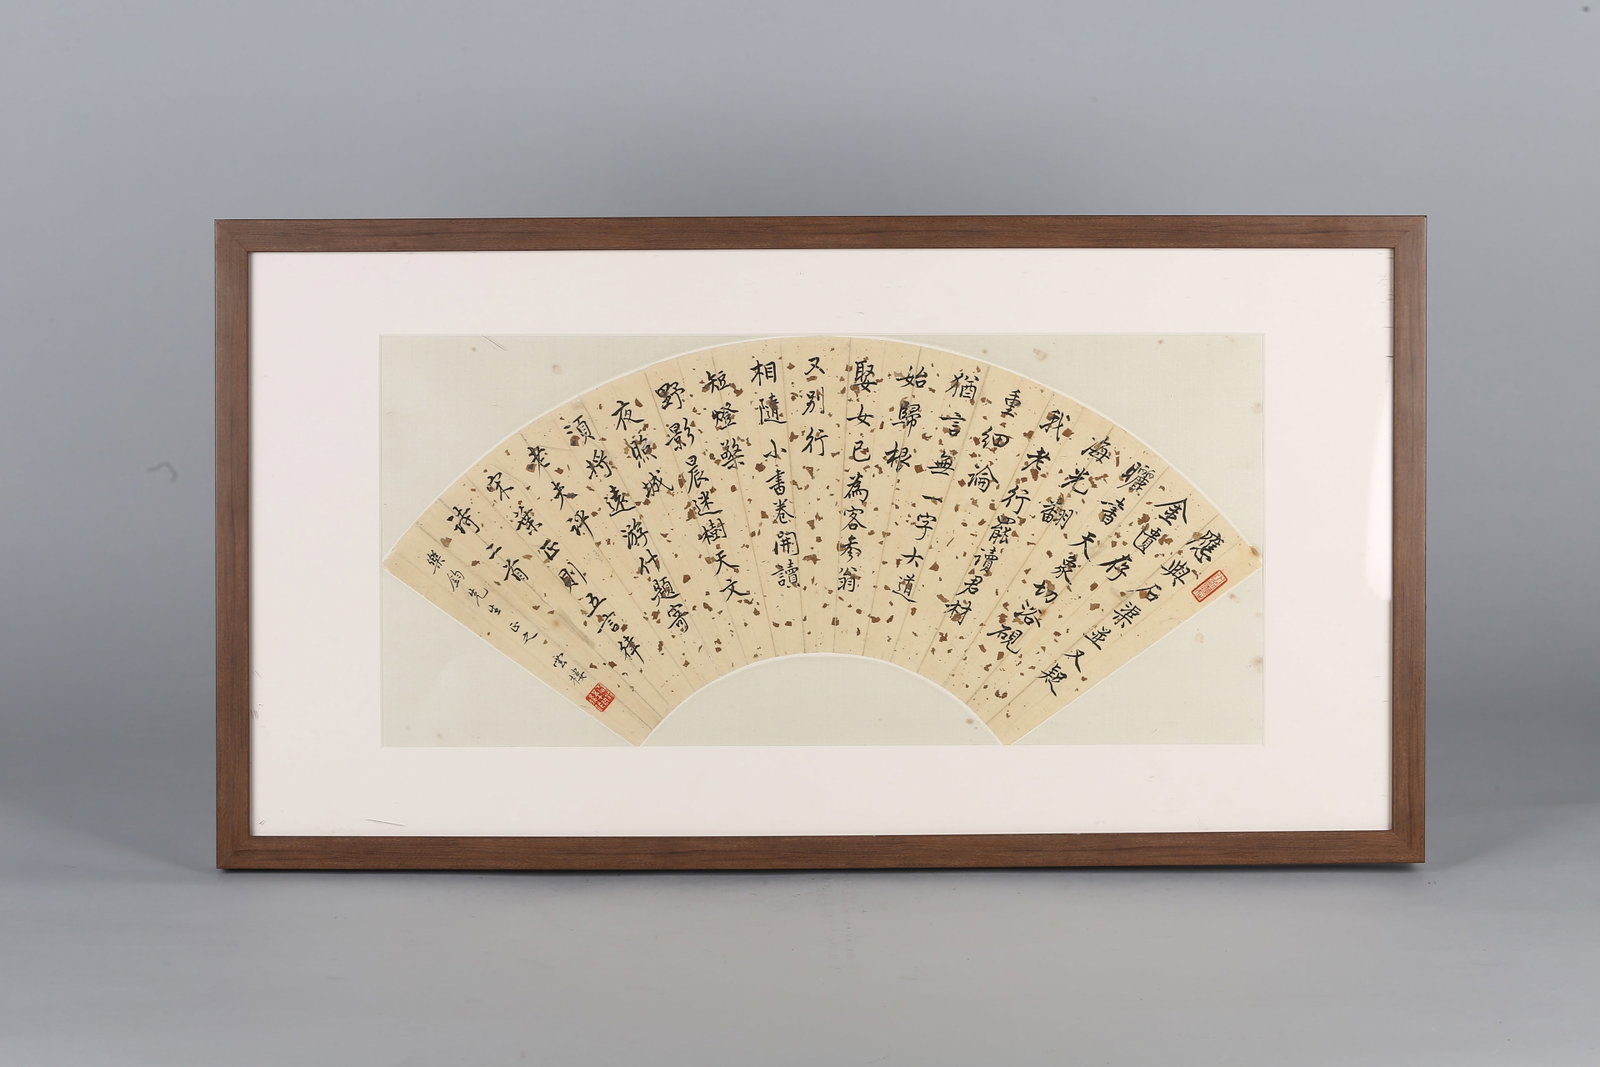 應與石渠並又疑
金匱存
曬書天象切浴硯
海光翻
我老行罷讀君材
重細論
猶言無一字大道
始歸根
娶女已為客參翁
又別行
相隨小書卷開讀
短燈檠
野影晨迷樹天文
夜照城
須將遠游什題寄
老夫評
宋葉正則五言律
詩二首
樂鈞先生正之 雲樓